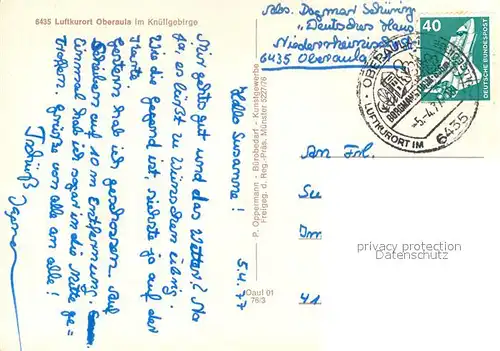 6435 Luftkurort Oberaula im Knüllgebirge
Abs. Dagmar
"Deutsches Haus
6435 Oberaula
40
DEUTSCHE BUNDESPOST
OBERAULA
LUFTKURORT IM
6435
5.4.77
Hallo Susanne!
Mir gehts gut und das Wetter? Na
ja, es lässt zu wünschen übrig.
Wie die Gegend ist siehste ja auf der
Karte.
Gestern hab ich geschossen. Auf
Scheiben auf 10 m Entfernung.
Einmal hab ich sogar in die Mitte ge=
troffen. Grüsse von alle an alle!
Tschüß
Dagmar
P. Oppermann - Bürobedarf - Kunstgewerbe
Freigeg. d. Reg.-Präs. Münster 5227/76
Oaul 01
76/3
An Frl.
Su
Im
41
privacy protection
Datenschutz